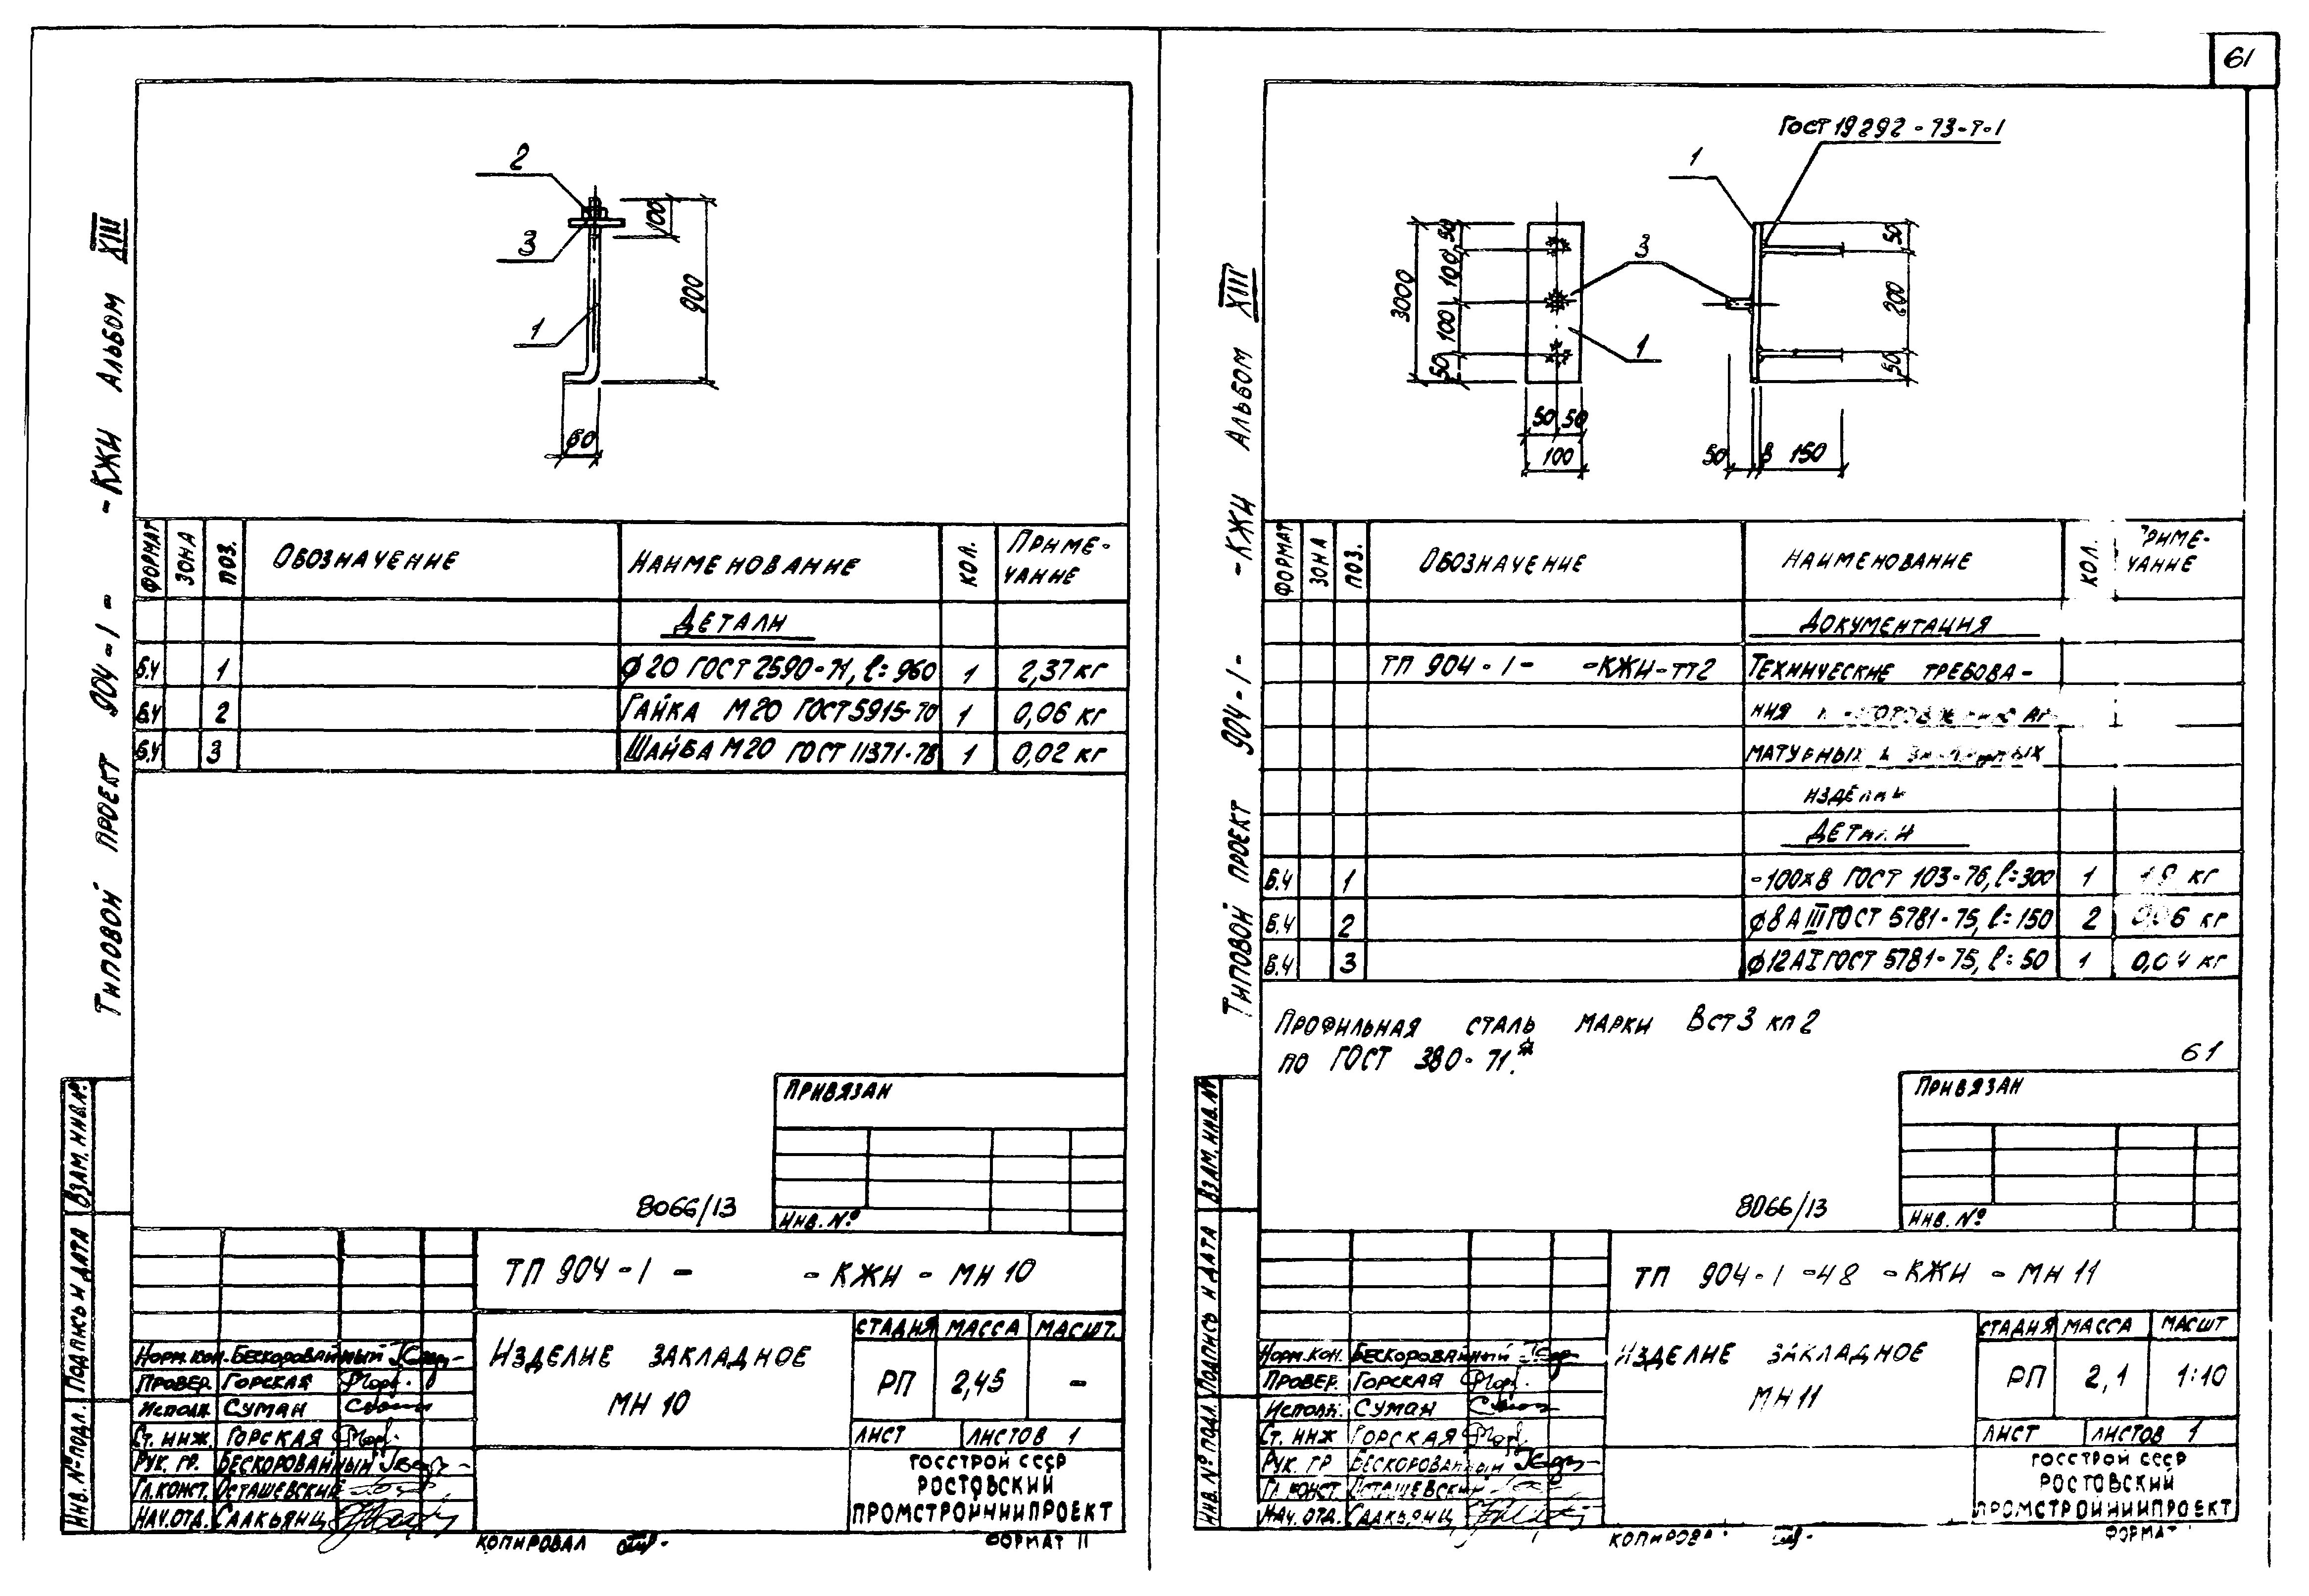 61
Типовой проект 904-1- -КЖИ Альбом XIII
2
3
1
100
900
60
Формат
Зона
Поз.
Обозначение
Наименование
Кол.
Приме-
чание
Детали
Б.Ч 1 ϕ20 ГОСТ 2590-71, ℓ=960 1 2,37 кг
Б.Ч 2 Гайка М20 ГОСТ 5915-70 1 0,06 кг
Б.Ч 3 Шайба М20 ГОСТ 11371-78 1 0,02 кг
Привязан
Инв. №
8066/13
ТП 904-1- -КЖИ-МН10
Изделие закладное
МН 10
Стадия Масса Масшт.
РП 2,45 -
Лист Листов 1
Госстрой СССР
Ростовский
Промстройниипроект
Норм.кон. Бескоровайный
Провер. Горская
Исполн. Суман
Ст. инж. Горская
Рук. гр. Бескоровайный
Гл. конст. Осташевский
Нач. отд. Саакьянц
Взам. инв. №
Подпись и дата
Инв. № подл.
Копировал
Формат 11
Типовой проект 904-1- -КЖИ Альбом XIII
ГОСТ 19292-73-Т-1
1
3
1
3000
50
100
100
50
50 50
100
50
200
50
50 8 150
Формат
Зона
Поз.
Обозначение
Наименование
Кол.
Приме-
чание
Документация
ТП 904-1- -КЖИ-ТТ2 Технические требова-
ния
изделий
Детали
Б.Ч 1 -100х8 ГОСТ 103-76, ℓ=300 1 1,9 кг
Б.Ч 2 ϕ8АIII ГОСТ 5781-75, ℓ=150 2 0,06 кг
Б.Ч 3 ϕ12АI ГОСТ 5781-75, ℓ=50 1 0,04 кг
Профильная сталь марки Вст3 кп2
по ГОСТ 380-71*.
61
Привязан
Инв. №
8066/13
ТП 904-1-48-КЖИ-МН11
Изделие закладное
МН11
Стадия Масса Масшт
РП 2,1 1:10
Лист Листов 1
Госстрой СССР
Ростовский
Промстройниипроект
Норм.кон. Бескоровайный
Провер. Горская
Исполн. Суман
Ст. инж Горская
Рук. гр Бескоровайный
Гл конст. Осташевский
Нач. отд. Саакьянц
Взам. инв. №
Подпись и дата
Инв. № подл.
Копировал
Формат